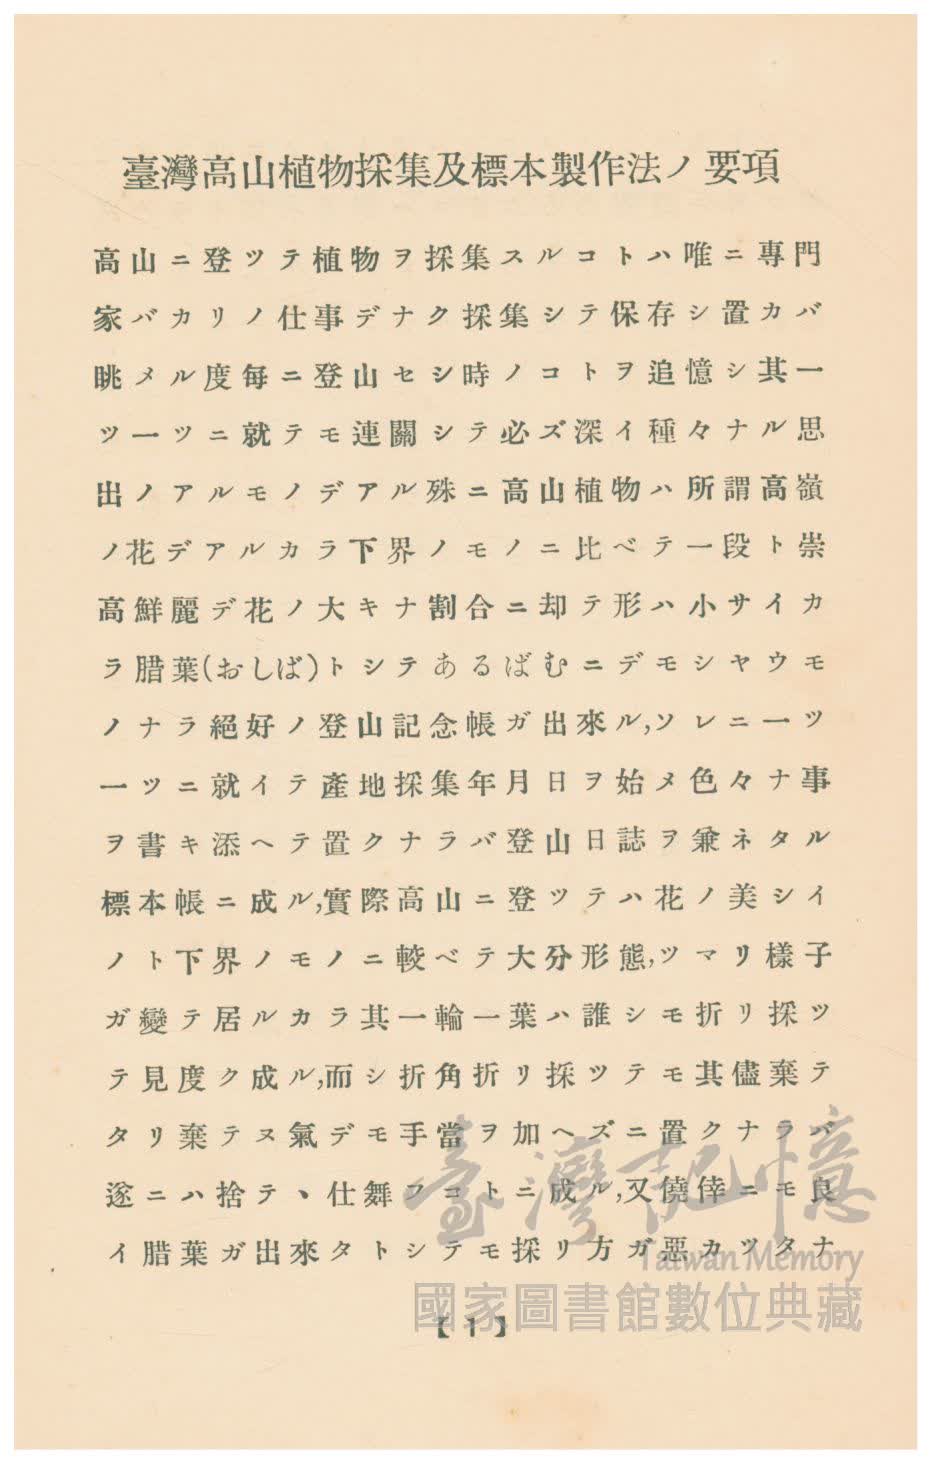 臺灣高山植物採集及標本製作法ノ要項
高山ニ登ツテ植物ヲ採集スルコトハ唯ニ專門
家バカリノ仕事デナク採集シテ保存シ置カバ
眺メル度每ニ登山セシ時ノコトヲ追憶シ其一
ツ一ツニ就テモ連關シテ必ズ深イ種々ナル思
出ノアルモノデアル殊ニ高山植物ハ所謂高嶺
ノ花デアルカラ下界ノモノニ比ベテ一段ト崇
高鮮麗デ花ノ大キナ割合ニ却テ形ハ小サイカ
ラ腊葉(おしば)トシテあるばむニデモシヤウモ
ノナラ絕好ノ登山記念帳ガ出來ル,ソレニ一ツ
一ツニ就イテ產地採集年月日ヲ始メ色々ナ事
ヲ書キ添ヘテ置クナラバ登山日誌ヲ兼ネタル
標本帳ニ成ル,實際高山ニ登ツテハ花ノ美シイ
ノト下界ノモノニ較ベテ大分形態,ツマリ樣子
ガ變テ居ルカラ其一輪一葉ハ誰シモ折リ採ツ
テ見度ク成ル,而シ折角折リ採ツテモ其儘棄テ
タリ棄テヌ氣デモ手當ヲ加ヘズニ置クナラバ
遂ニハ捨テヽ仕舞フコトニ成ル,又僥倖ニモ良
イ腊葉ガ出來タトシテモ採リ方ガ惡カツタナ
臺灣記憶
Taiwan Memory
國家圖書館數位典藏
【1】